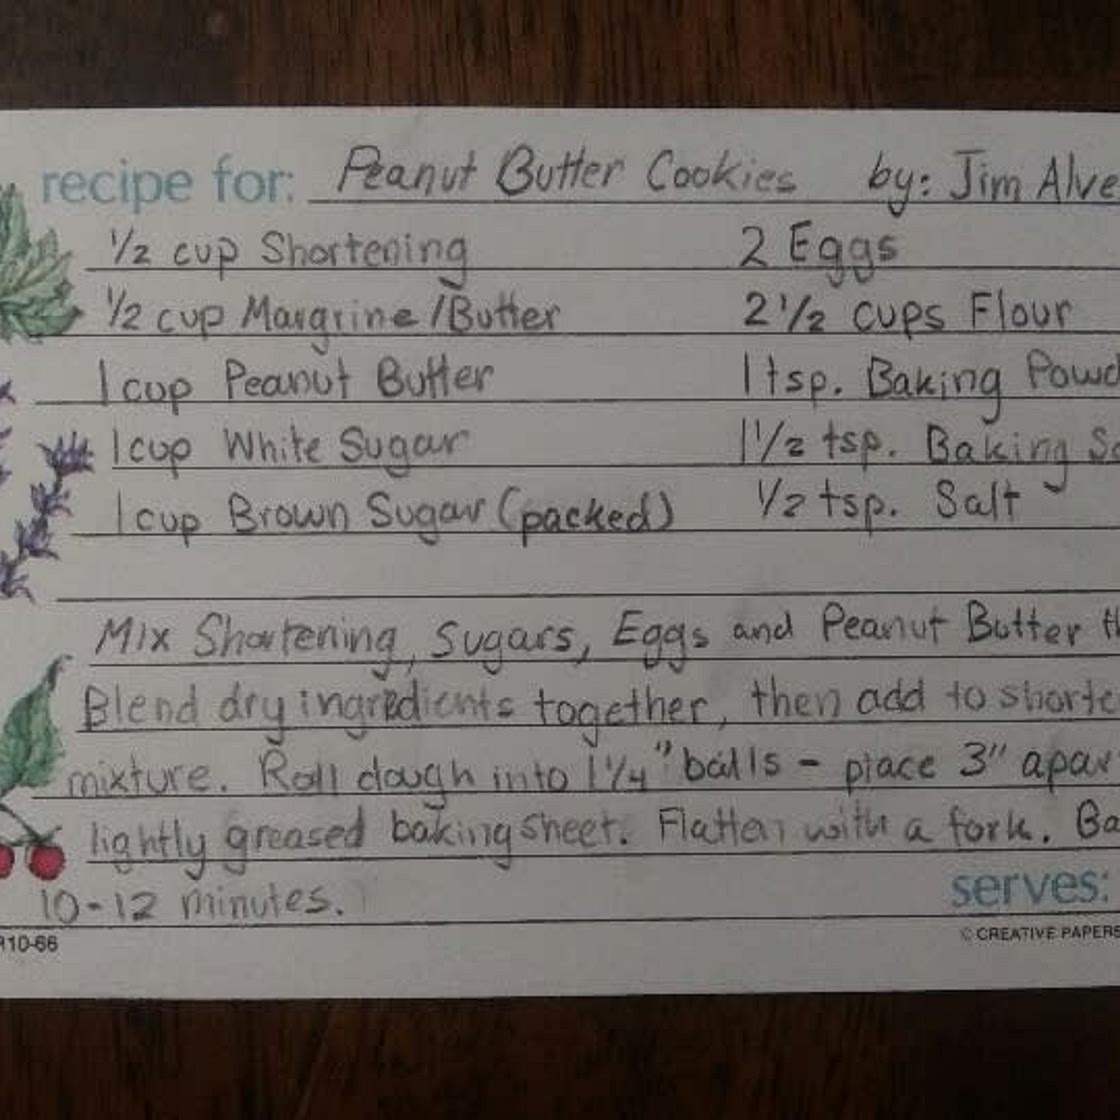 recipe for: Peanut Butter Cookies by: Jim Alve
1/2 cup Shortening 2 Eggs
1/2 cup Margrine/Butter 2 1/2 cups Flour
1 cup Peanut Butter 1 tsp. Baking Powd
1 cup White Sugar 1 1/2 tsp. Baking So
1 cup Brown Sugar (packed) 1/2 tsp. Salt
Mix Shortening, Sugars, Eggs and Peanut Butter th
Blend dry ingredients together, then add to shorte
mixture. Roll dough into 1 1/4" balls - place 3" apar
lightly greased baking sheet. Flatten with a fork. Ba
10-12 minutes.
serves:
R10-66 © CREATIVE PAPERS